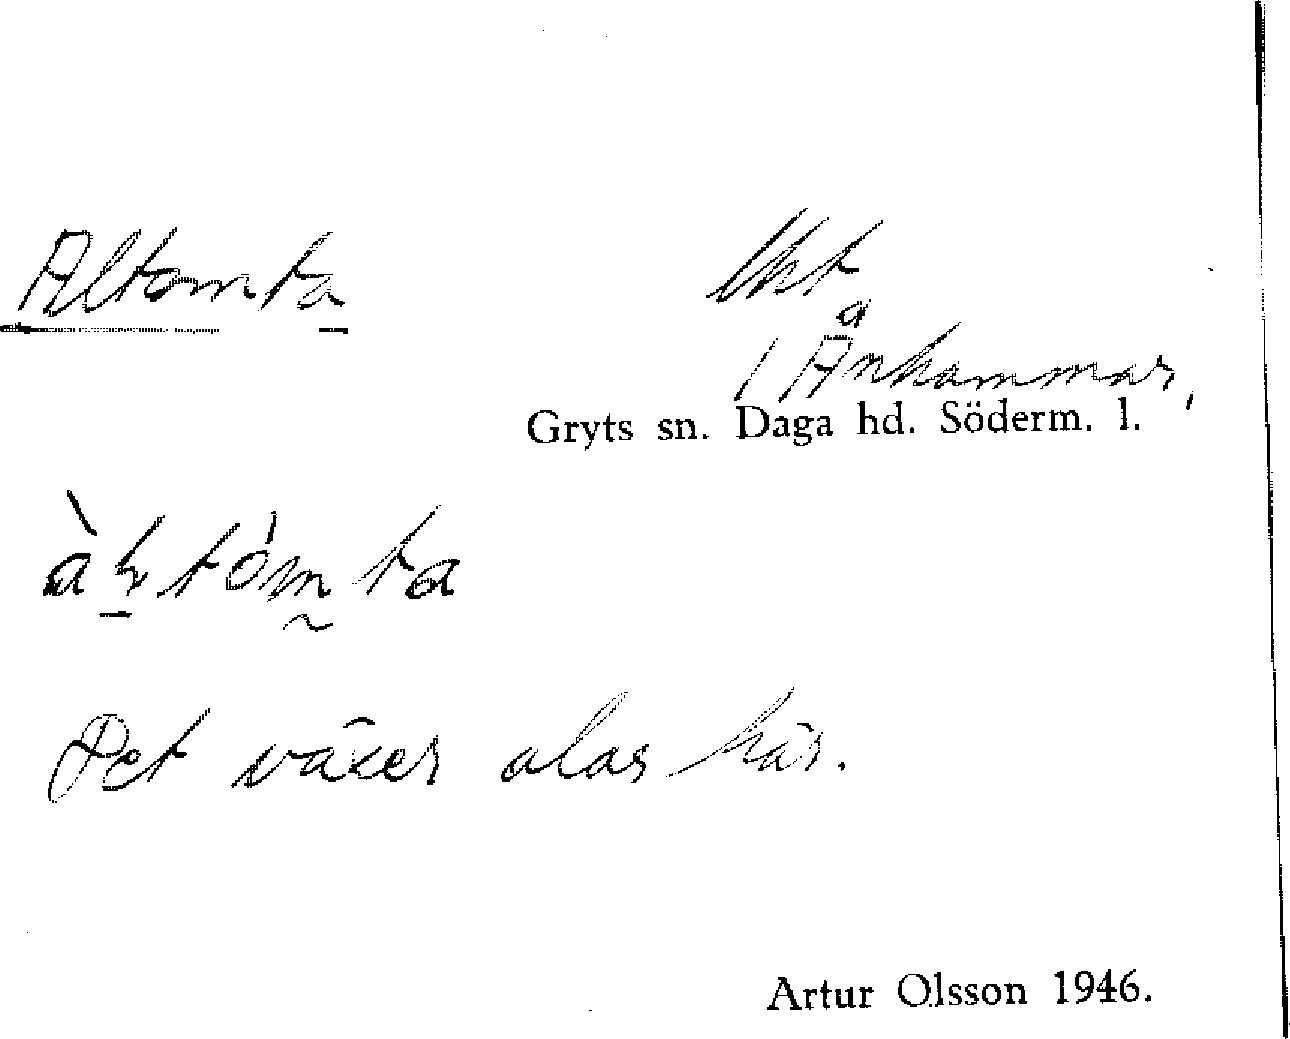 Altomta
lht
å
1 Ånhammar,
Gryts sn. Daga hd. Söderm. l.
Det växer alar här.
Artur Olsson 1946.